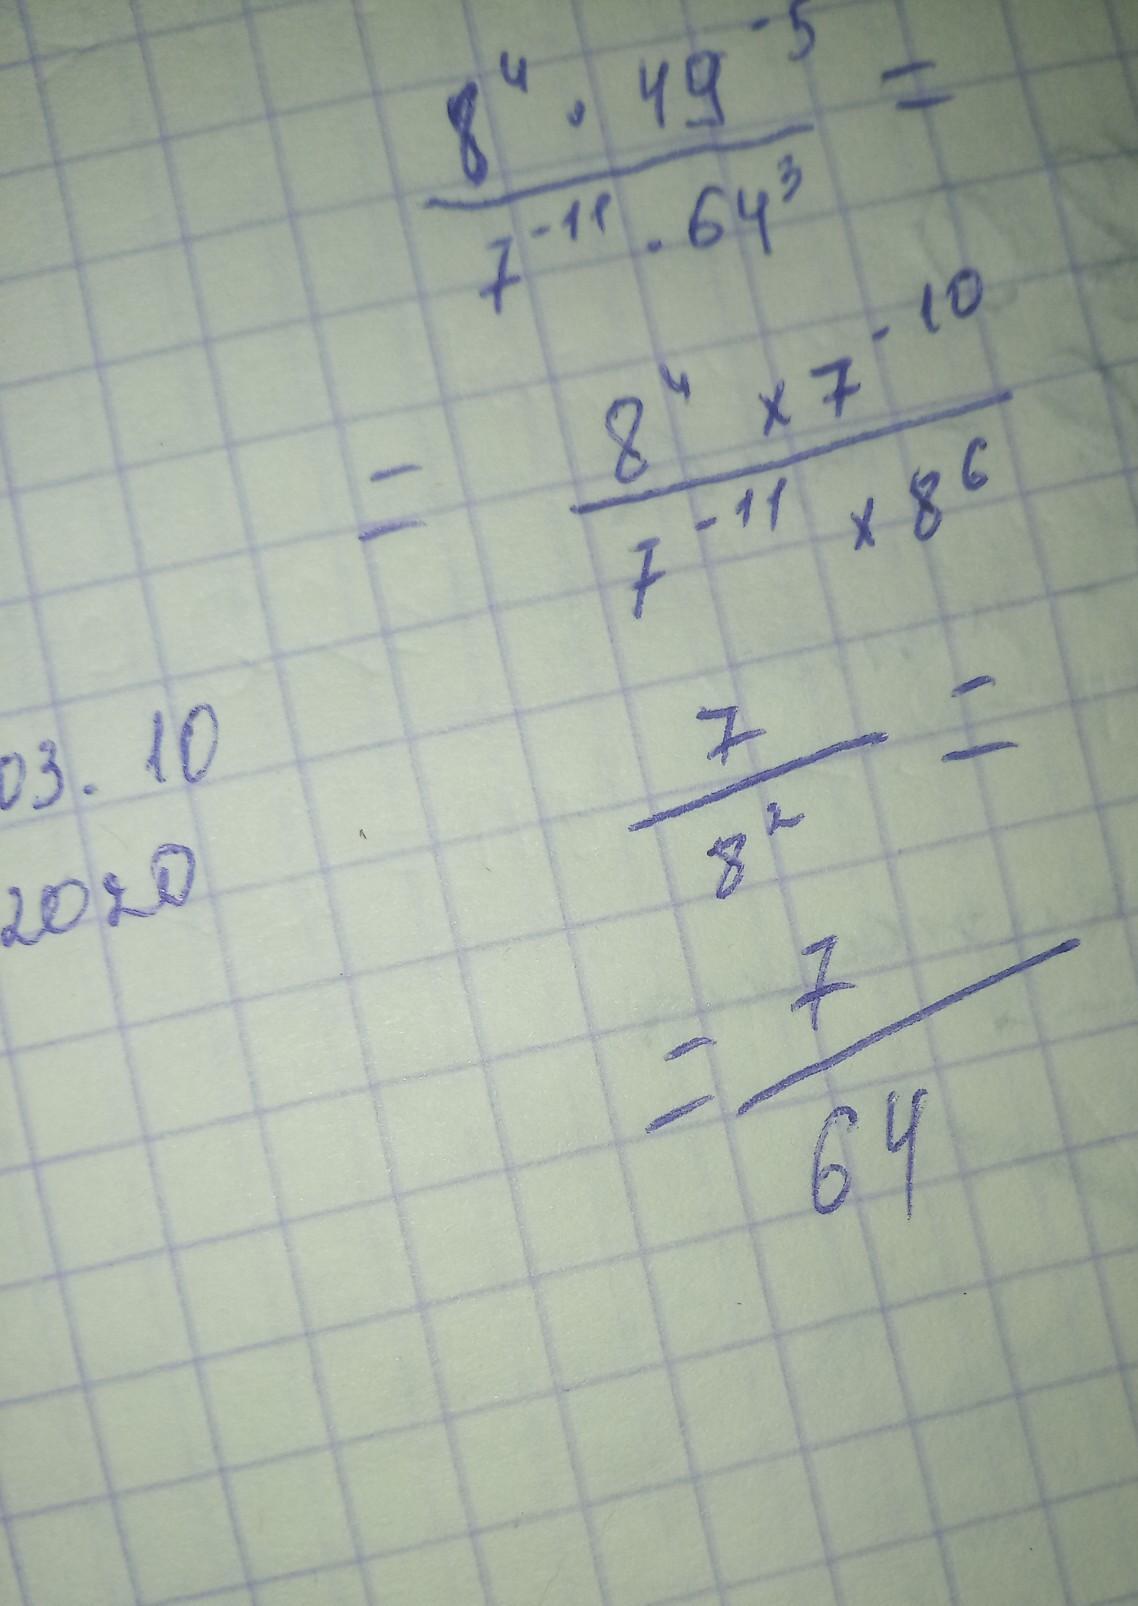 8⁴ · 49⁻⁵ =
7⁻¹¹ · 64³
= 8⁴ × 7⁻¹⁰
7⁻¹¹ × 8⁶
7 =
8²
03. 10
2020
= 7
64